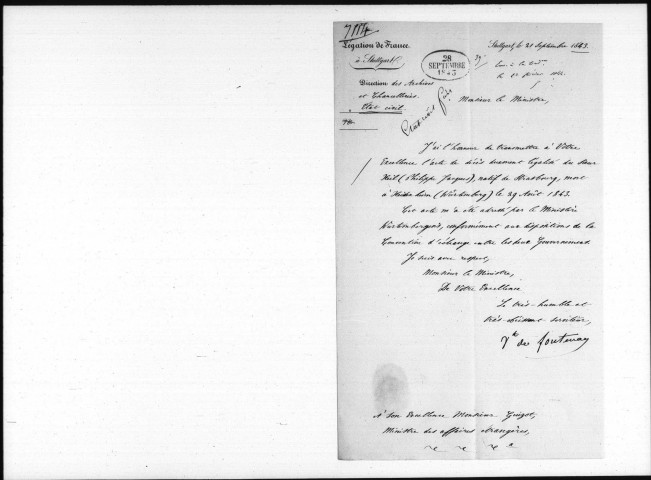 Légation de France
à Stuttgart
Stuttgart, le 21 Septembre 1843.
28
SEPTEMBRE
1843
Direction des Archives
et Chancelleries.
Etat civil
Monsieur le Ministre,
J'ai l'honneur de transmettre à Votre
Excellence l'acte de décès dûment légalisé du Sieur
(Philippe Jacques), natif de Strasbourg, mort
à (Würtemberg) le 29 Août 1843.
Cet acte m'a été adressé par le Ministère
Wurtembergeois, conformément aux dispositions de la
Convention d'échange entre les deux Gouvernements.
Je suis avec respect,
Monsieur le Ministre,
De Votre Excellence
Le très-humble et
très-obéissant serviteur,
Vte de Fontenay
A Son Excellence Monsieur Guizot,
Ministre des affaires étrangères,